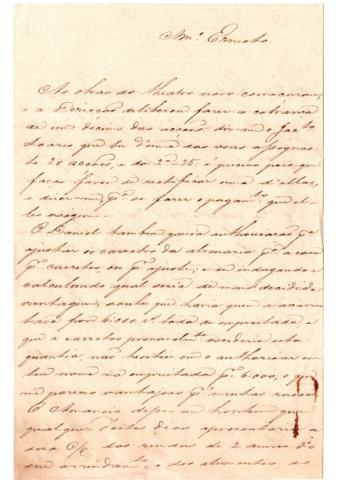 Am.º Ernesto
As obras do theatro novo começaram,
e a Direcção deliberou fazer a cobrança
de um decimo das acções; diz-me o Jac.to
Soares que tu d'uma das vezes
20 acções, e da 2.ª 25. é preciso pois que
faças favor de rectificar uma d'ellas,
e dizer-me, p.ª se fazer o pagam.to que el-
les exigem.
O Daniel tambem queria authorisação p.ª
ajustar os carretos da alvenaria p.ª a casa
p.r carretos ou p.r ajuste; e eu indagando e
calculando qual seria de mais decidida
vantagem, soube que havia quem a acarre-
tava por 6:000 r.s toda de empreitada, e
que a carretos provavelm.te excederia esta
quantia, não hesitei em o authorisar em
teu nome na empreitada p.r 6:000, o que
me pareceu vantajoso p.r muitas razões
O Amancio disse-me hontem que
qualquer d'estes dias apresentaria a
sua C/c das rendas de 2 annos do
seu arrendam.to e dos alimentos ao